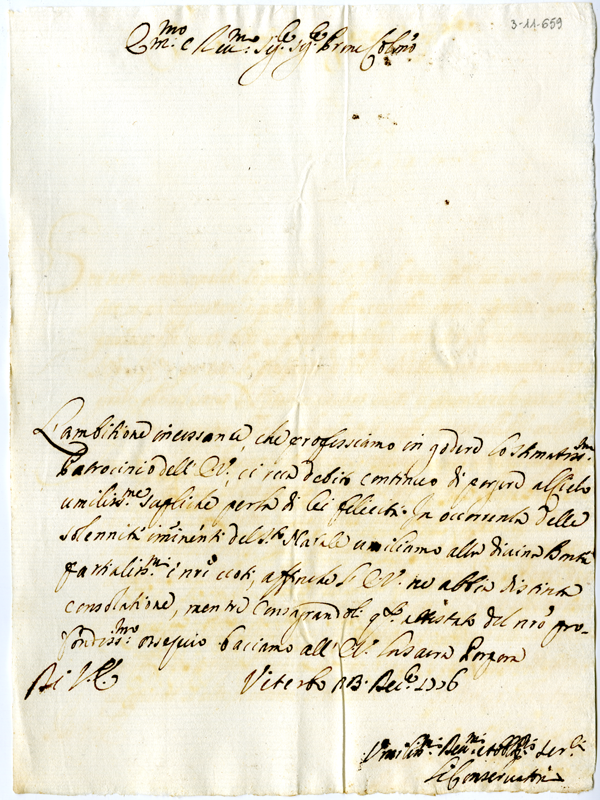 3-11-659
E.mo e Rev.mo Sig.re Sig.re Prone Col.mo
L'ambitione incessante, che professiamo in godere lo stimatiss.mo
Patrocinio dell'E.V., ci reca debito continuo di porgere al Cielo
umiliss.me supliche per la di lei felicità. In occorrenza delle
solennità imminenti del S.to Natale umiliamo alla divina Bontà
partialiss.mi i nri voti, affinche l'E.V. ne abbia distinta
consolatione, mentre consagrandoli q.to attestato del nro pro-
fondiss.mo ossequio baciamo all'E.V. la sacra Porpora
Di V.E. Viterbo Dec.e
Umiliss.mi Dev.mi et Obblig.mi Ser.ri
Li Conservatori